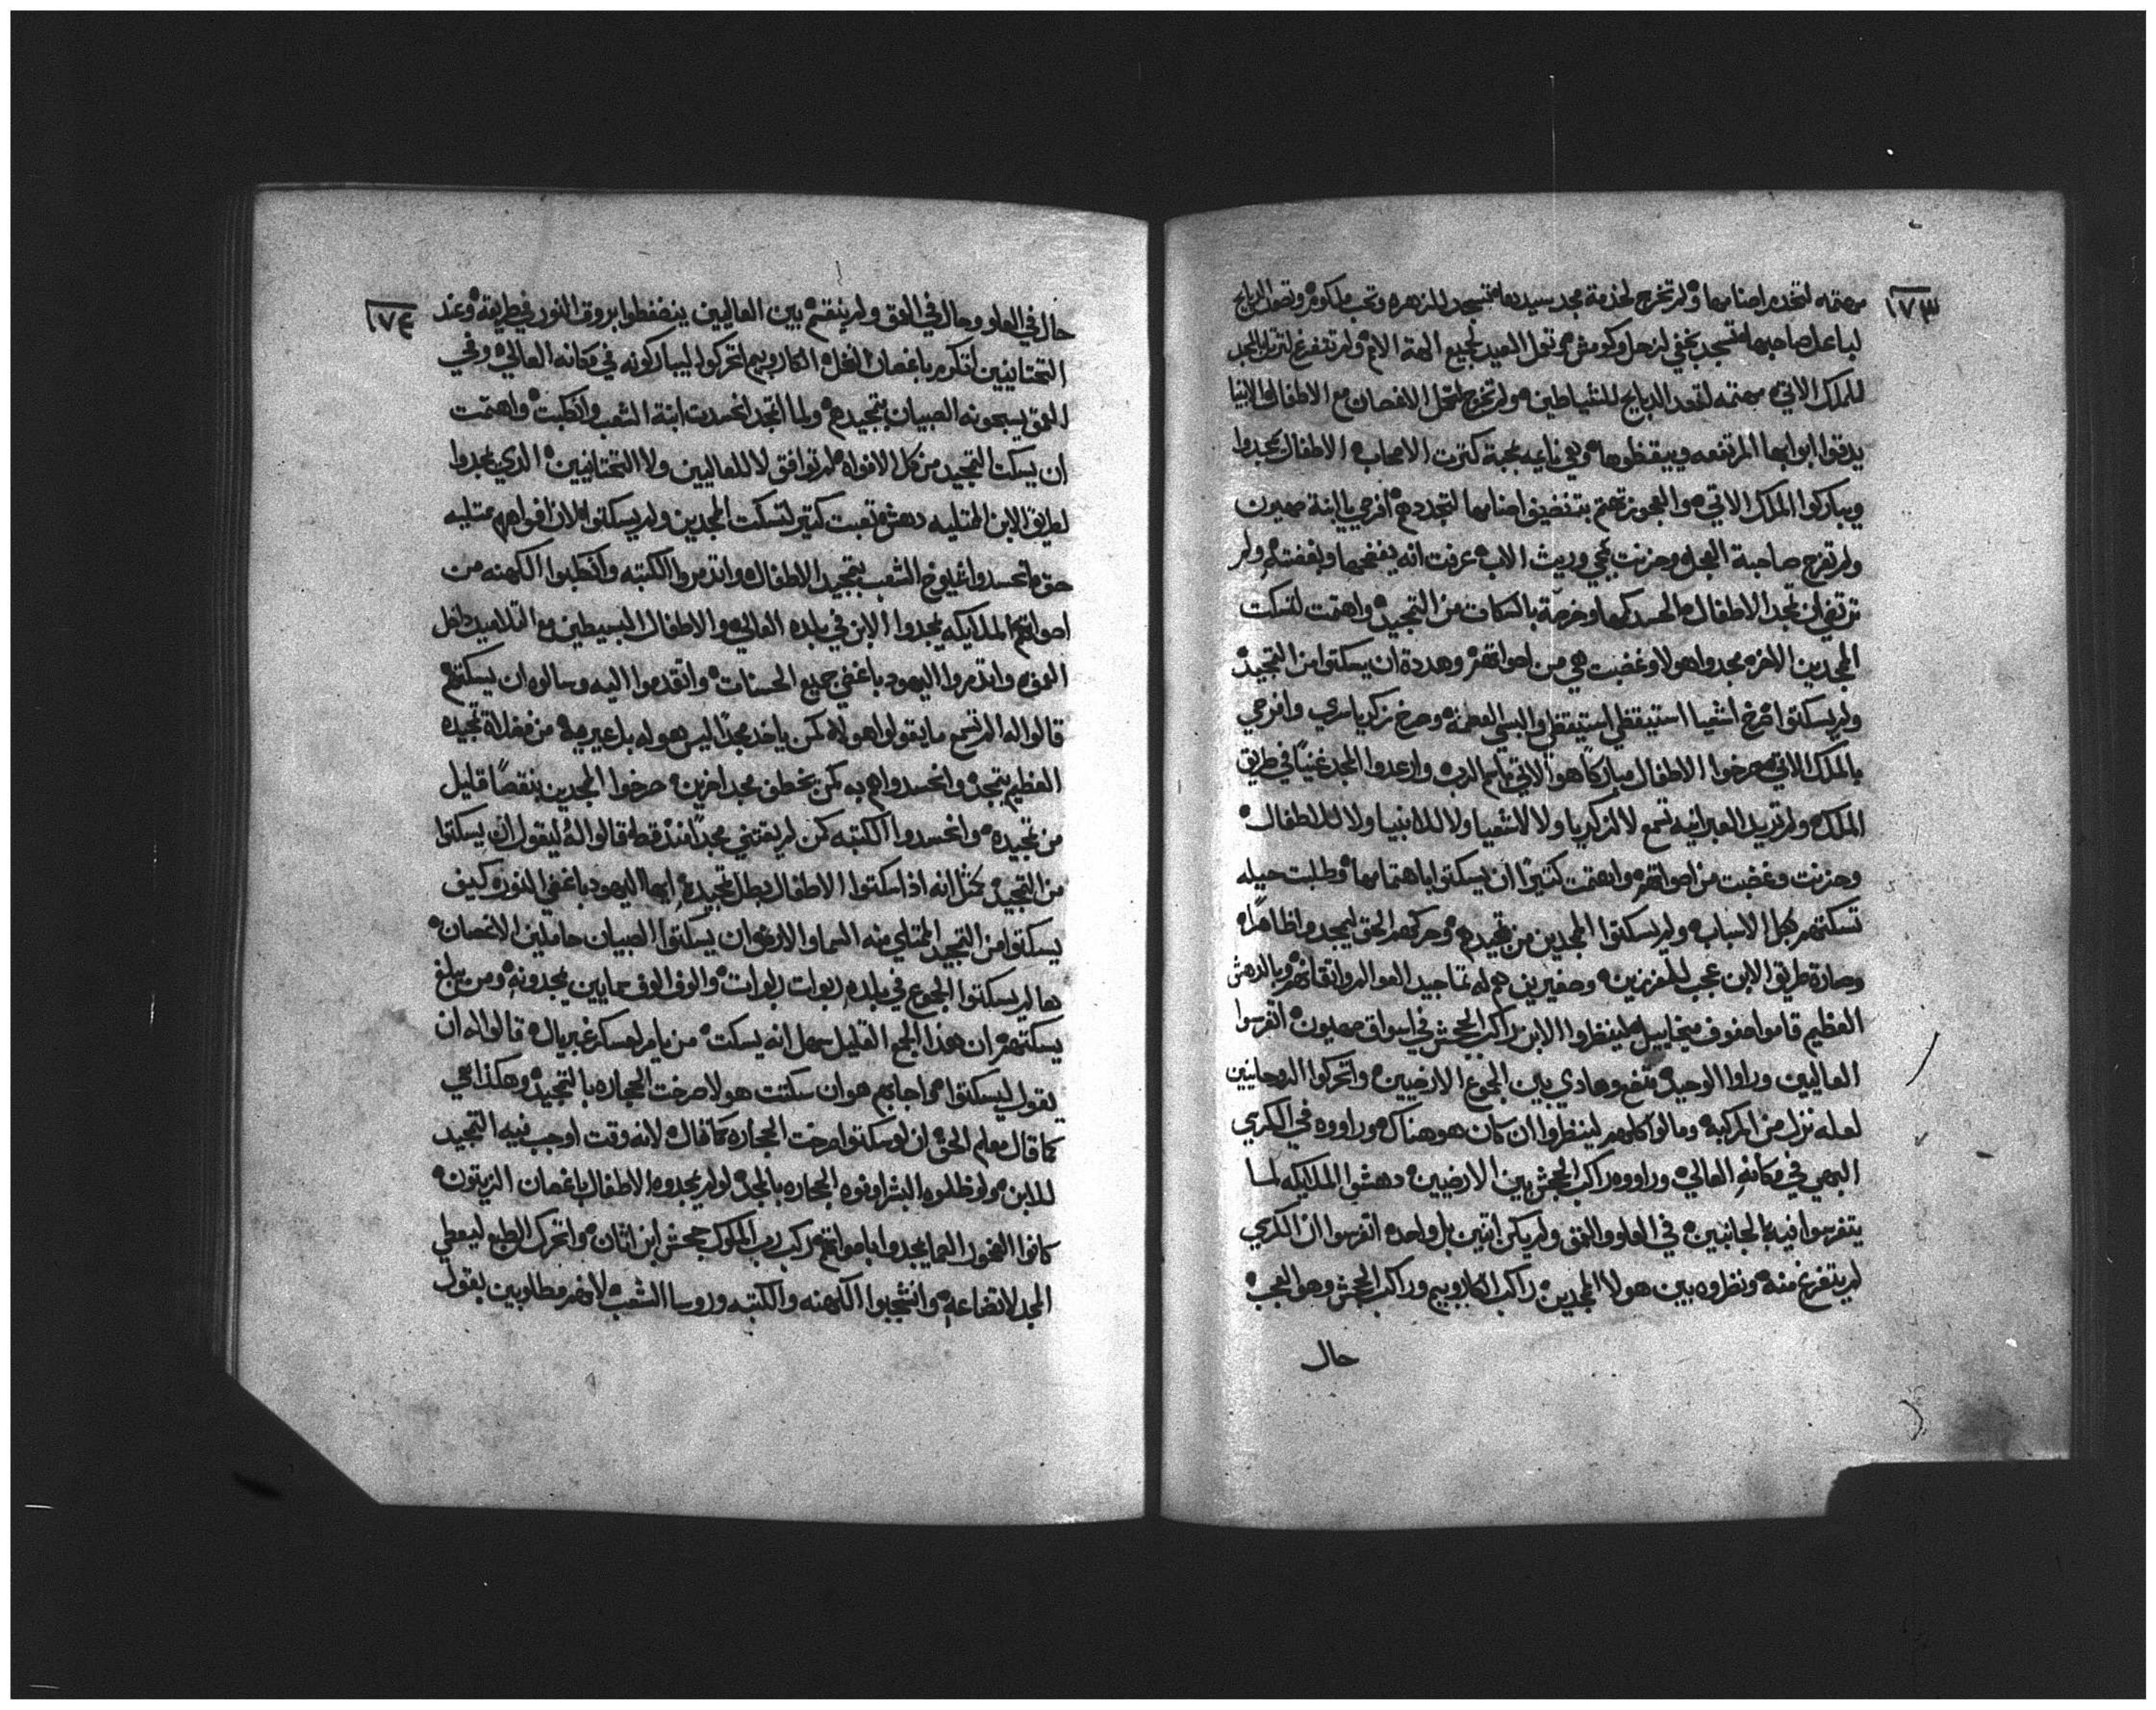 ١٧٣
مهتمه لتخدم اصنامها ولم تخرج لخدمة مجد سيدها تسجد للزهره وتحب ملكوم وتصعد الدبايح
لباعل صاحبها تسجد بخفي لزحل وكوش وتعمل العيد لجميع الهة الامم ولم تتفرغ لترتل المجد
للملك الاتي مهتمه لتصعد الدبايح للشياطين ولم تخرج لتحمل الاغصان مع الاطفال الانبيا
يدقوا ابوابها المرتفعه ويبقظوها وهي نايمه بمحبة كترت الاصحاب الاطفال مجدوا
وباركوا الملك الاتي والعجوز تهتم بتنضيف اصنامها لتجددهم افرحي يا ابنة صهيون
ولم تفرح صاحبة العجل وحزنت بمجي وريث الاب عرفت انه يفضحها وبغضته ولم
ترتضي ان تمجد الاطفال الحسد كمها وخرصة بالسكات من التمجيد واهتمت لتسكت
المجدين الاخره مجدوا هولا وغضبت هي من اصواتهم وهددة ان يسكتوا من التمجيد
ولم يسكتوا صرخ اشعيا استيقظي استيقظي والبسي العظمة وصرخ زكريا سري وافرحي
بالملك الاتي صرخوا الاطفال مباركا هو الاتي باسم الرب وارعدوا المجد غنيا في طريق
الملك ولم تريد العبرانيه تسمع لا لزكريا ولا لاشعيا ولا للانبيا ولا للاطفال
وحزنت وغضبت من اصواتهم واهتمت كتيرا ان يسكتوا باهتمامها وطلبت حيله
تسكتهم بكل الاسباب ولم يسكتوا المجدين من تمجيدهم وحركهم الحق ليمجدوا ظاهرا
وصارة طريق الابن عجب للعزيزين وصفيرين هم له تماجيد العوالم واتقانهم وبالدهش
العظيم قاموا صفوف ميخاييل لينظروا الابن راكب الجحش في اسواق صهيون اتفرسوا
العاليين وراوا الوحيد متضع وهادي بين الجموع الارضيين واتحركوا الروحانيين
لعله نزل من المركبه ومالوا كلهم لينظروا ان كان هو هناك وراووه في الكرسي
البهي في مكانه العالي وراووه راكب الجحش بين الارضيين دهشوا الملايكه لما
يتفرسوا فيه بالجانبين في العلو والعمق ولم يكن اتنين بل واحده اتفرسوا ان الكرسي
لم يتفرغ منه ونظروه بين هولا المجدين راكب الكاروبيم وراكب الجحش وهو العجب
حال
١٧٤
حال في العلو وحال في العمق ولم ينقسم بين العاليين ينضغطوا بروق النور في طريقه وعند
التحتانيين تكرم باغصان النخل الكاروبيم اتحركوا ليباركونه في مكانه العالي وفي
العمق يسبحونه الصبيان بتمجيدهم ولما اتمجد انحسدت ابنة الشعب واتكبت واهتمت
ان يسكت التمجيد من كل الافواه لم توافق لا للعاليين ولا التحتانيين الدي مجدوا
لطريق الابن الممتليه دهش تعبت كتير لتسكت المجدين ولم يسكتوا لان افواههم ممتليه
حق انحسدوا شيوخ الشعب بتمجيد الاطفال واتدمروا الكتبه واتكلبوا الكهنه من
اصواتهم الملايكه مجدوا الابن في بلده العالي والاطفال البسيطين مع التلاميد داخل
العمق واتدمروا اليهود باغضي جميع الحسنات واتقدموا اليه وسالوه ان يسكتهم
قالوا له الم تسمع ما يقولوا هولا كمن ياخد مجدا ليس هو له بل غير هذا من فضلاة تمجيده
العظيم تمجد وانحسدوا هم به كمن يخطف مجد اخرين صرخوا المجدين بنقصا قليل
من تمجيده وانحسدوا الكتبه كمن لم يقتني مجدا منذ قط قالوا له ليقول ان يسكتوا
من التمجيد كمثل انه اذا سكتوا الاطفال بطل تمجيده ايها اليهود باغضي النور كيف
يسكتوا من التمجيد الممتلي منه السما والارض ان يسكتوا الصبيان حاملين الاغصان
ها لم يسكتوا الجموع في بلده ربوات ربوات والوف الوف سمايين يمجدونه ومن يبلغ
يسكتهم ان هذا الجمع القليل سهل انه يسكت من يامر لعسكر غبريال قالوا له ان
يقول ليسكتوا اجابهم هو ان سكتت هولا صرخت الحجاره بالتمجيد وهكذا هي
كما قال معلم الحق ان لو سكتوا صرخت الحجاره كما قال لانه وقت اوجب فيه التمجيد
للابن ولو ظلموه البشر اوفوه الحجاره بالمجد لو لم يمجدوه الاطفال باغصان الزيتون
كانوا الصخور الصما يمجدوا باصواتهم ركب رب الملوك جحش ابن اتان واتحرك الطبع ليعطي
المجد لاتضاعه وانتحبوا الكهنه والكتبه وروسا الشعب لانهم مطلوبين بقول